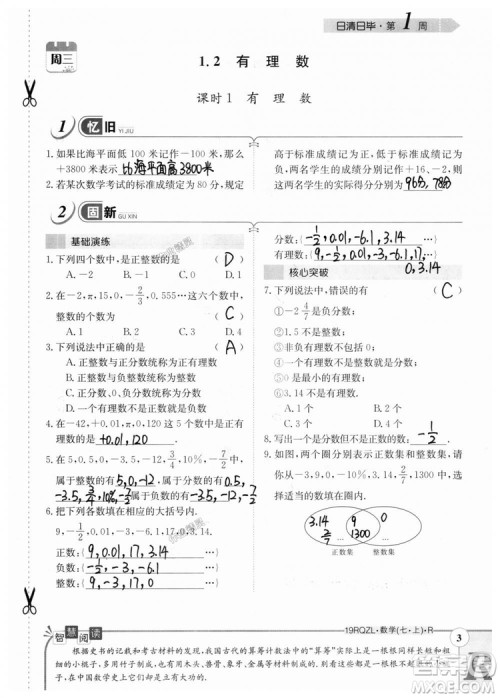 日清日毕·第1周
周三
1.2 有理数
课时1 有理数
1 忆旧 YI JIU
1.如果比海平面低100米记作-100米,那么
+3800表示比海平面高3800米
2.若某次数学考试的标准成绩定为80分,规定
高于标准成绩记为正,低于标准成绩记为
负,两名学生的成绩分别记作+16、-2,则
这两名学生的实际得分分别为96分,78分
2 固新 GU XIN
基础演练
1.下列四个数中,是正整数的是 (D)
A.-2 B.-1 C.0 D.1
2.在-2,π,15,0,-2/3,0.555…这六个数中,
整数的个数为 (C)
A.1 B.2 C.3 D.4
3.下列说法中正确的是 (A)
A.正整数与正分数统称为正有理数
B.正整数与负整数统称为整数
C.正分数、0、负分数统称为分数
D.一个有理数不是正数就是负数
4.在-42,+0.01,π,0,120这5个数中是正有
理数的是+0.01,120.
5.在5,0.5,0,-3.5,-12,3/4,10%,-7/2中,
属于整数的有5,0,-12.属于分数的有0.5,
-3.5,3/4,10%,-7/2属于负数的有-3.5,-12,-7/2
6.把下列各数填在相应的大括号内.
9,-1/2,0.01,-3,-6.1,17,0,3.14.
正数:{9,0.01,17,3.14…}
负数:{-1/2,-3,-6.1…}
整数:{9,-3,17,0…}
分数:{-1/2,0.01,-6.1,3.14…}
有理数:{9,-1/2,0.01,-3,-6.1,17,…}
0,3.14
核心突破
7.下列说法中,错误的有 (C)
①-2 4/7是负分数;
②1.5不是整数;
③非负有理数不包括0;
④正整数、负整数统称为有理数;
⑤0是最小的有理数;
⑥3.14不是有理数.
A.1个 B.2个
C.3个 D.4个
8.写出一个是分数但不是正数的数-1/2.
9.如图,两个圈分别表示正数集和整数集,请
你从-3,9,0,-10%,3.14,2/7,1300中,选
择适当的数填在圈内.
3.14 9 0
2/7 1300
正数集 整数集
19RQZL·数学(七·上)·R
3
智慧阅读
根据史书的记载和考古材料的发现,我国古代的算筹计数法中的“算筹”实际上是一根根同样长短和粗细
的小棍子,多用竹子制成,也有用木头、兽骨、象牙、金属等材料制成的
在中国数学史上它们